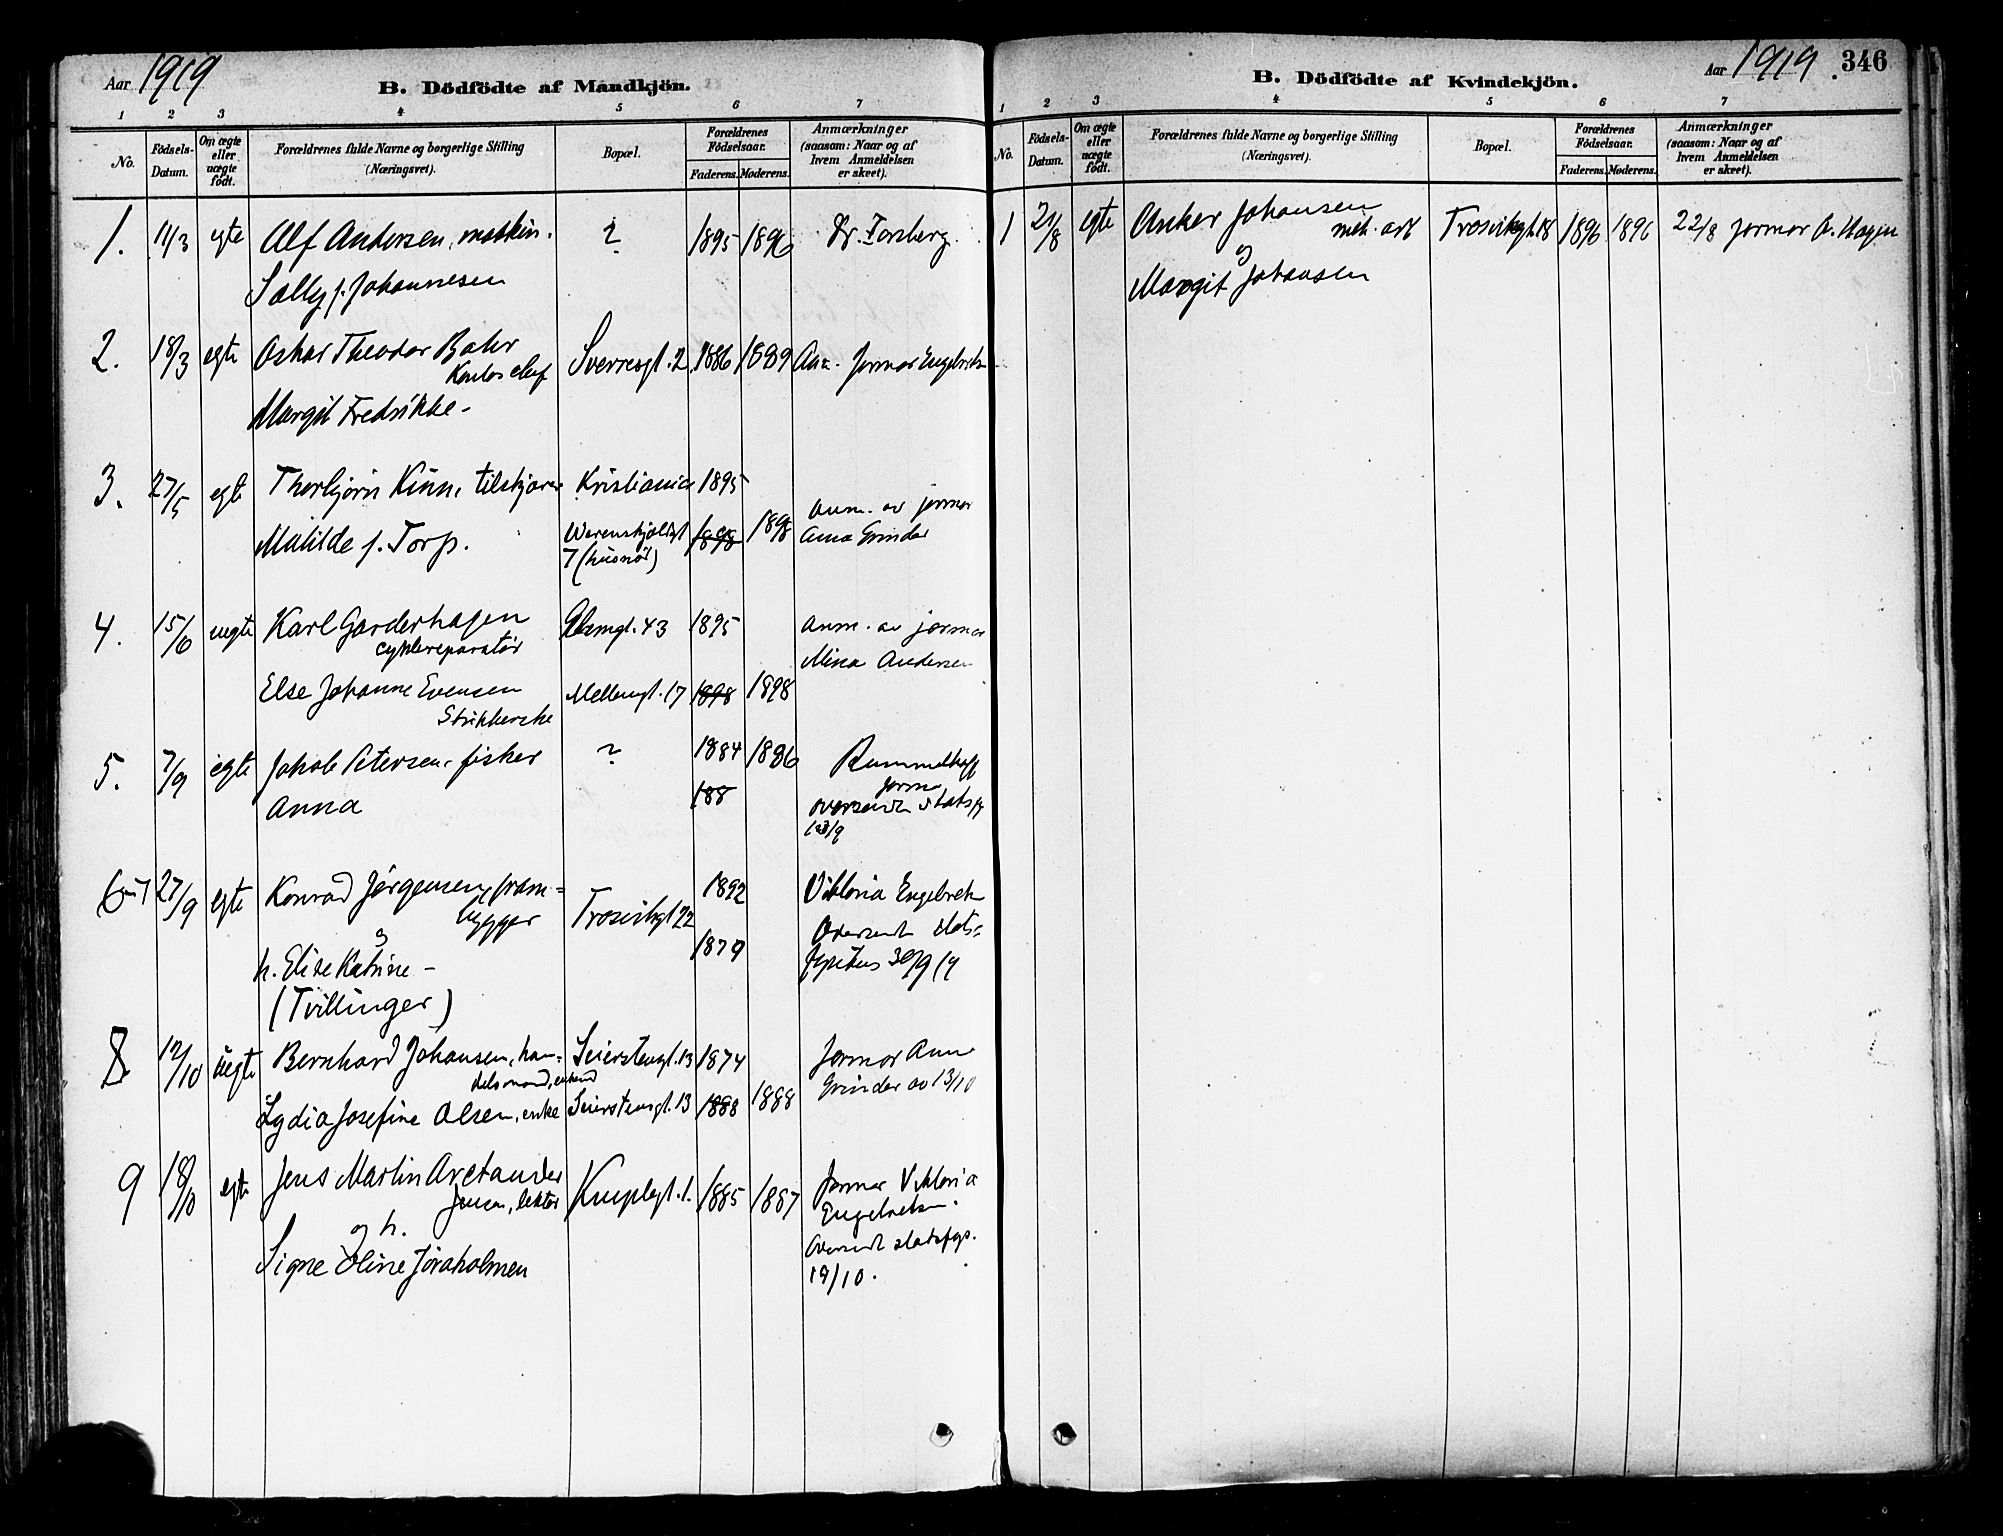 Aar 1919
B. Dödfödte af Mandkjön.
1 2 3 4 5 6 7
No. Födsels-Datum. Om ægte eller uægte födt. Forældrenes fulde Navne og borgerlige Stilling (Næringsvei). Bopæl. Forældrenes Födselsaar. Faderens. Moderens. Anmærkninger (saasom: Naar og af hvem Anmeldelsen er skeet).
1. 11/3 egte Alf Andersen, maskin. ? 1895 1896 Dr. Forsberg.
Sally f. Johannesen
2. 18/3 egte Oskar Theodor Bahr Sverresgt. 2 1886 1889 Anm. jormor Engebrets
Margit Fredrikke -
3. 27/5 egte Thorbjørn Kinn, tilskjærer Kristiania 1895
Matilde f. Torp. Werenskjoldsgt 1898 1898 anm. av jormor
7 (husnö) Anna Grinder
4. 15/6 uegte Karl Garderhagen Glemgt. 43 1895 anm. av jormor
cyklereparatör Mina Andersen
Else Johanne Evensen Mellemgt. 17 1898 1898
Strikkerske
5. 7/9 egte Jakob Petersen, fisker ? 1884 1886 Rummelhoff
Anna 188 jorm
oversendt statsfy
6-7 27/9 egte Konrad Jörgensen, 1892 Viktoria Engebrets
bygger Trosvikgt 22 Oversendt stats-
og 1879 fysikus 30/9 19
h. Elise Katrine -
(Tvillinger)
8 12/10 uegte Bernhard Johansen, han- Seierstensgt. 13 1874 Jormor Anna
delsmand, enkemd Grinder av 13/10
Lydia Josefine Olsen, enke Seierstensgt. 13 1888 1888
9 18/10 egte Jens Martin Arctander 1885 1887 Jormor Viktoria
Jensen, lektor Engebretsen.
og h. Oversendt statsfys.
Signe Oline 19/10.
Aar 1919. 346
B. Dödfödte af Kvindekjön.
1 2 3 4 5 6 7
No. Födsels-Datum. Om ægte eller uægte födt. Forældrenes fulde Navne og borgerlige Stilling (Næringsvei). Bopæl. Forældrenes Födselsaar. Faderens. Moderens. Anmærkninger (saasom: Naar og af hvem Anmeldelsen er skeet).
1 21/8 egte Anker Johansen Trosvikgt. 18 1896 1896 22/8 jormor A. Hagen
mek. arb
og
Margit Johansen